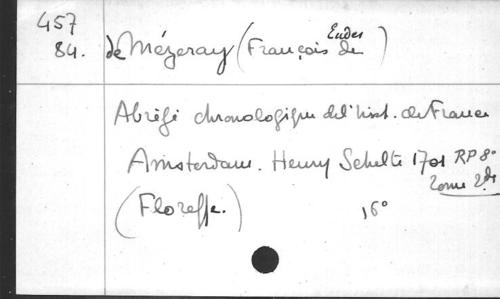 457
84. de Mézeray (François Eudes de)
Abrégé chronologique de l'hist. de France
Amsterdam. Henry Schelte 1701 RP 8°
Tome 2d
(Floreffe.) 16°